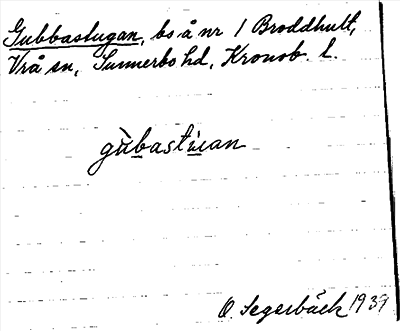 Gubbastugan, bs å nr 1 Broddhult,
Vrå sn, Sunnerbo hd, Kronob. l.
gùbastúan
O. Segerbäck 1939